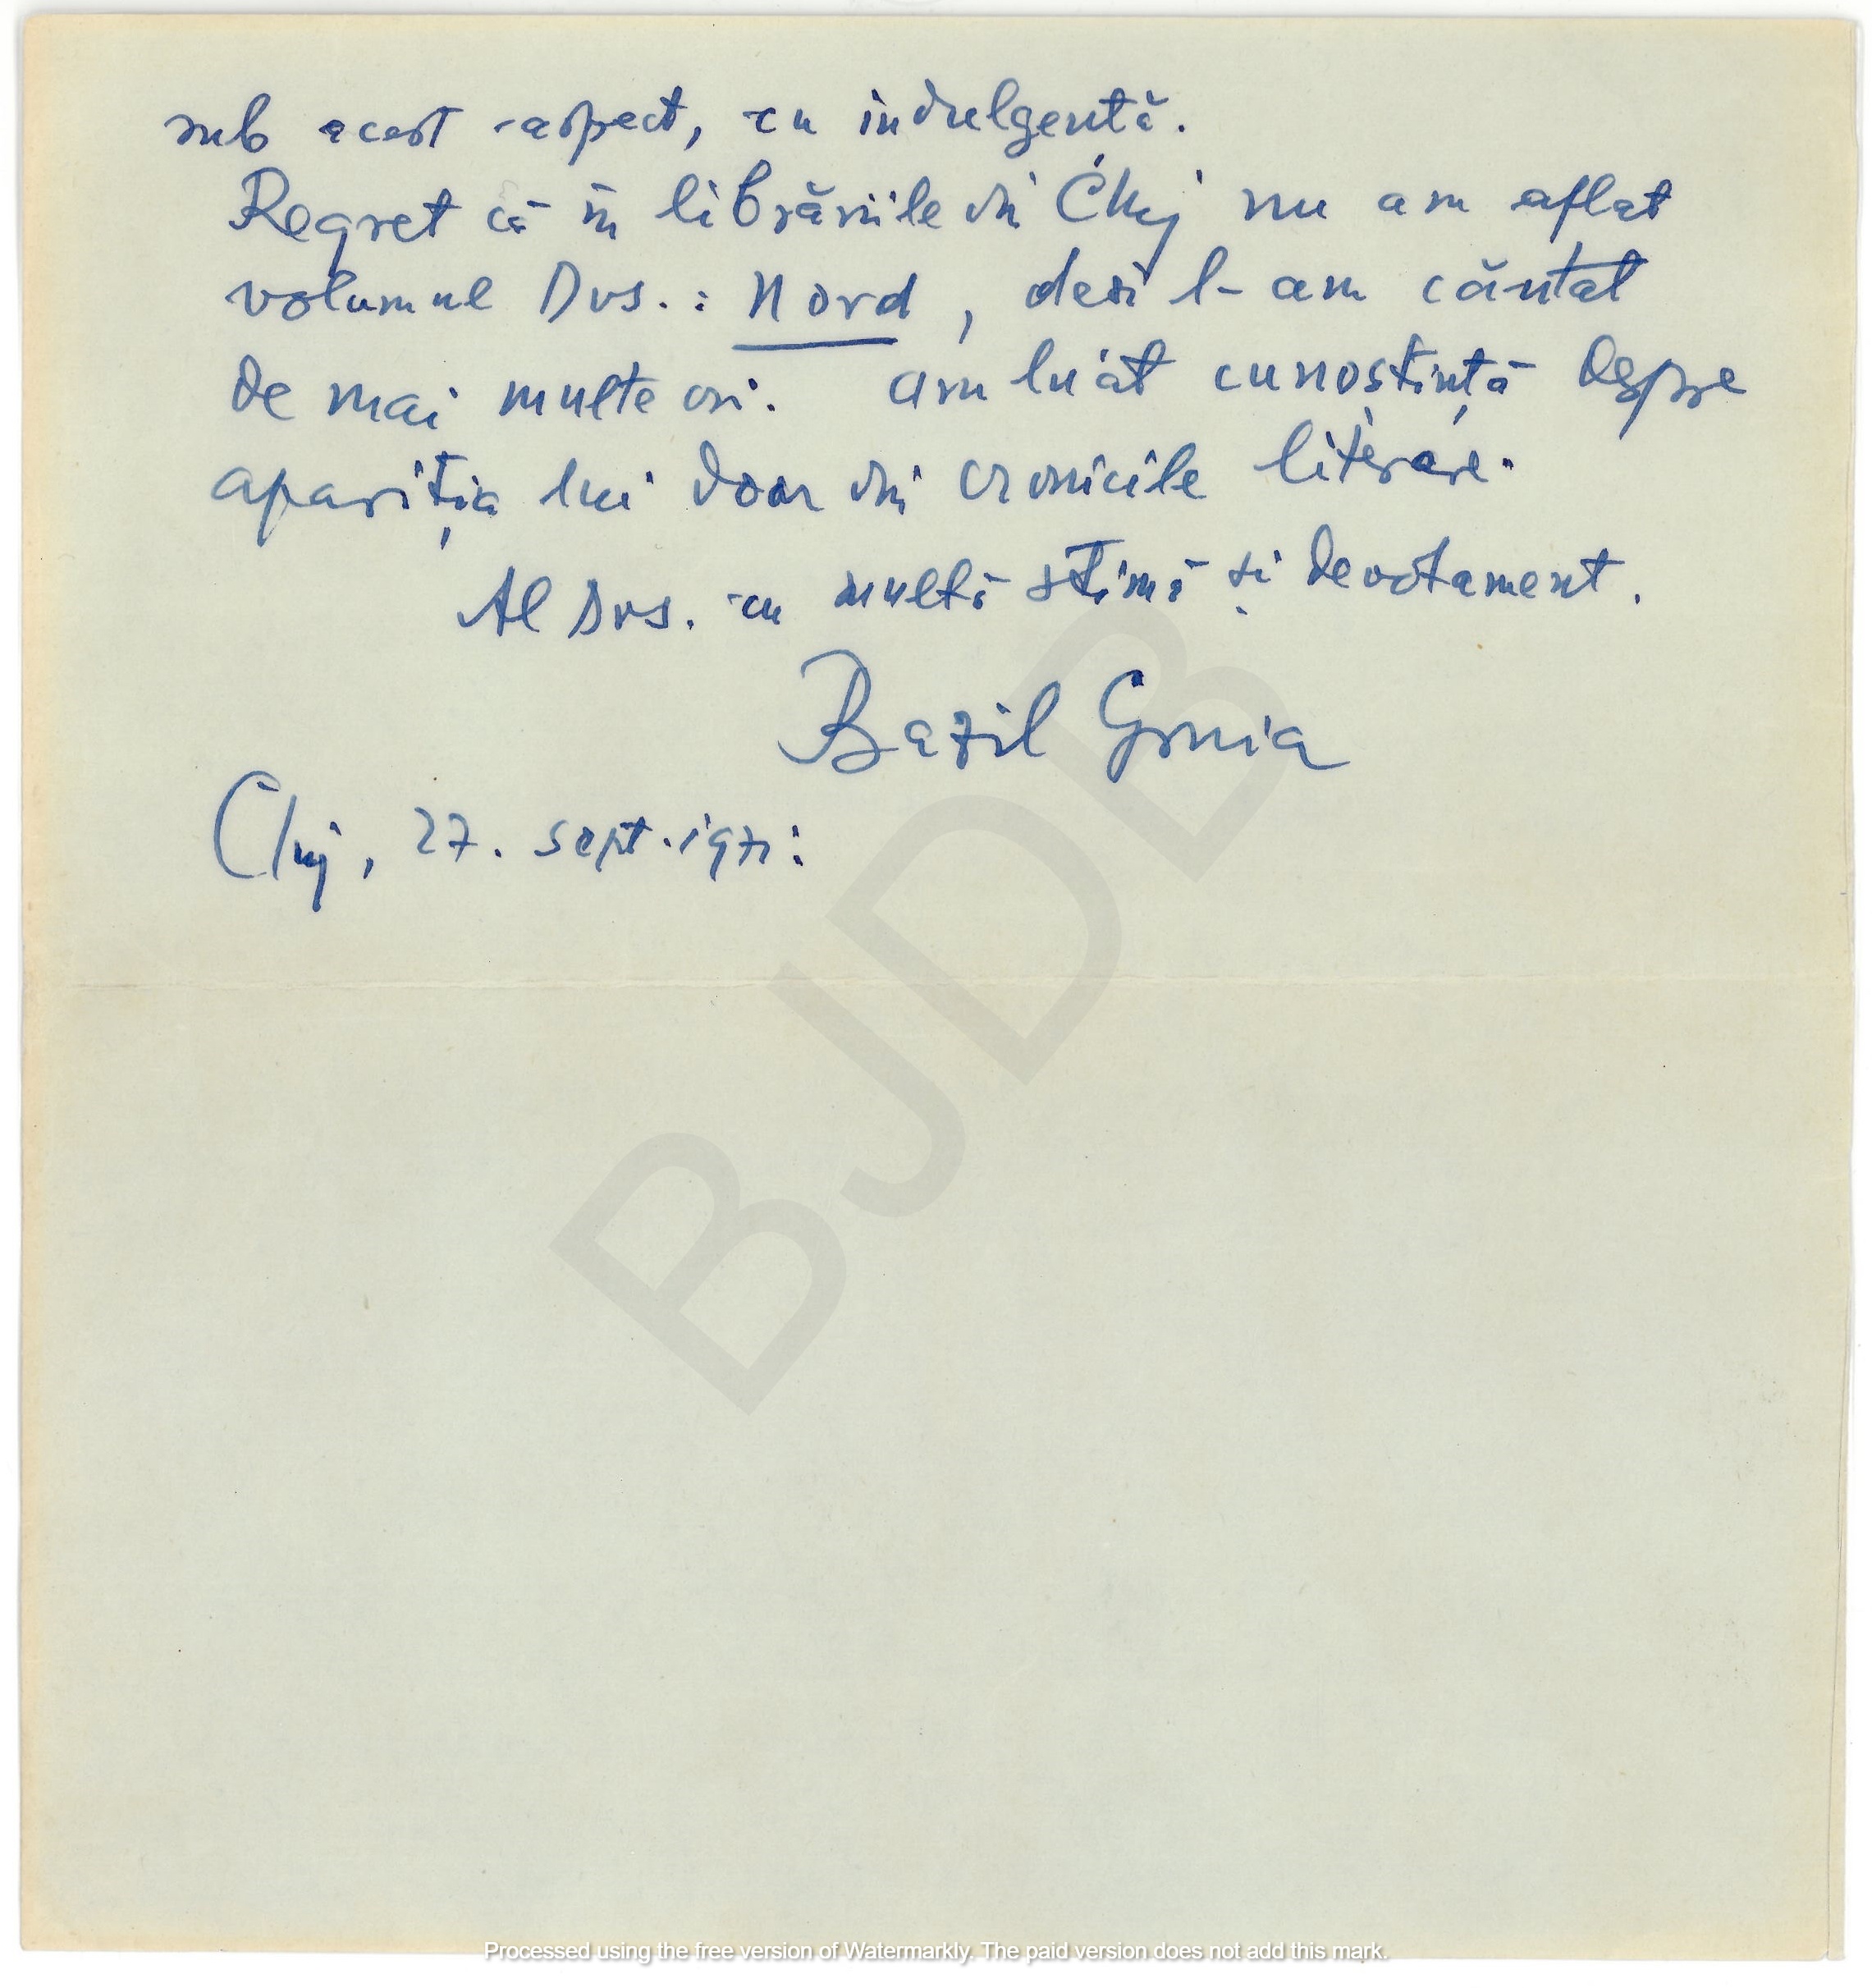 sub acest aspect, cu indulgență.
Regret că în librăriile din Cluj nu am aflat
volumul Dvs.: Nord, desi l-am căutat
de mai multe ori. Am luat cunostință despre
apariția lui doar din cronicile literare.
Al Dvs. cu multă stimă și devotament.
Bazil Gruia
Cluj, 27. sept. 1971.
BJDB
Processed using the free version of Watermarkly. The paid version does not add this mark.